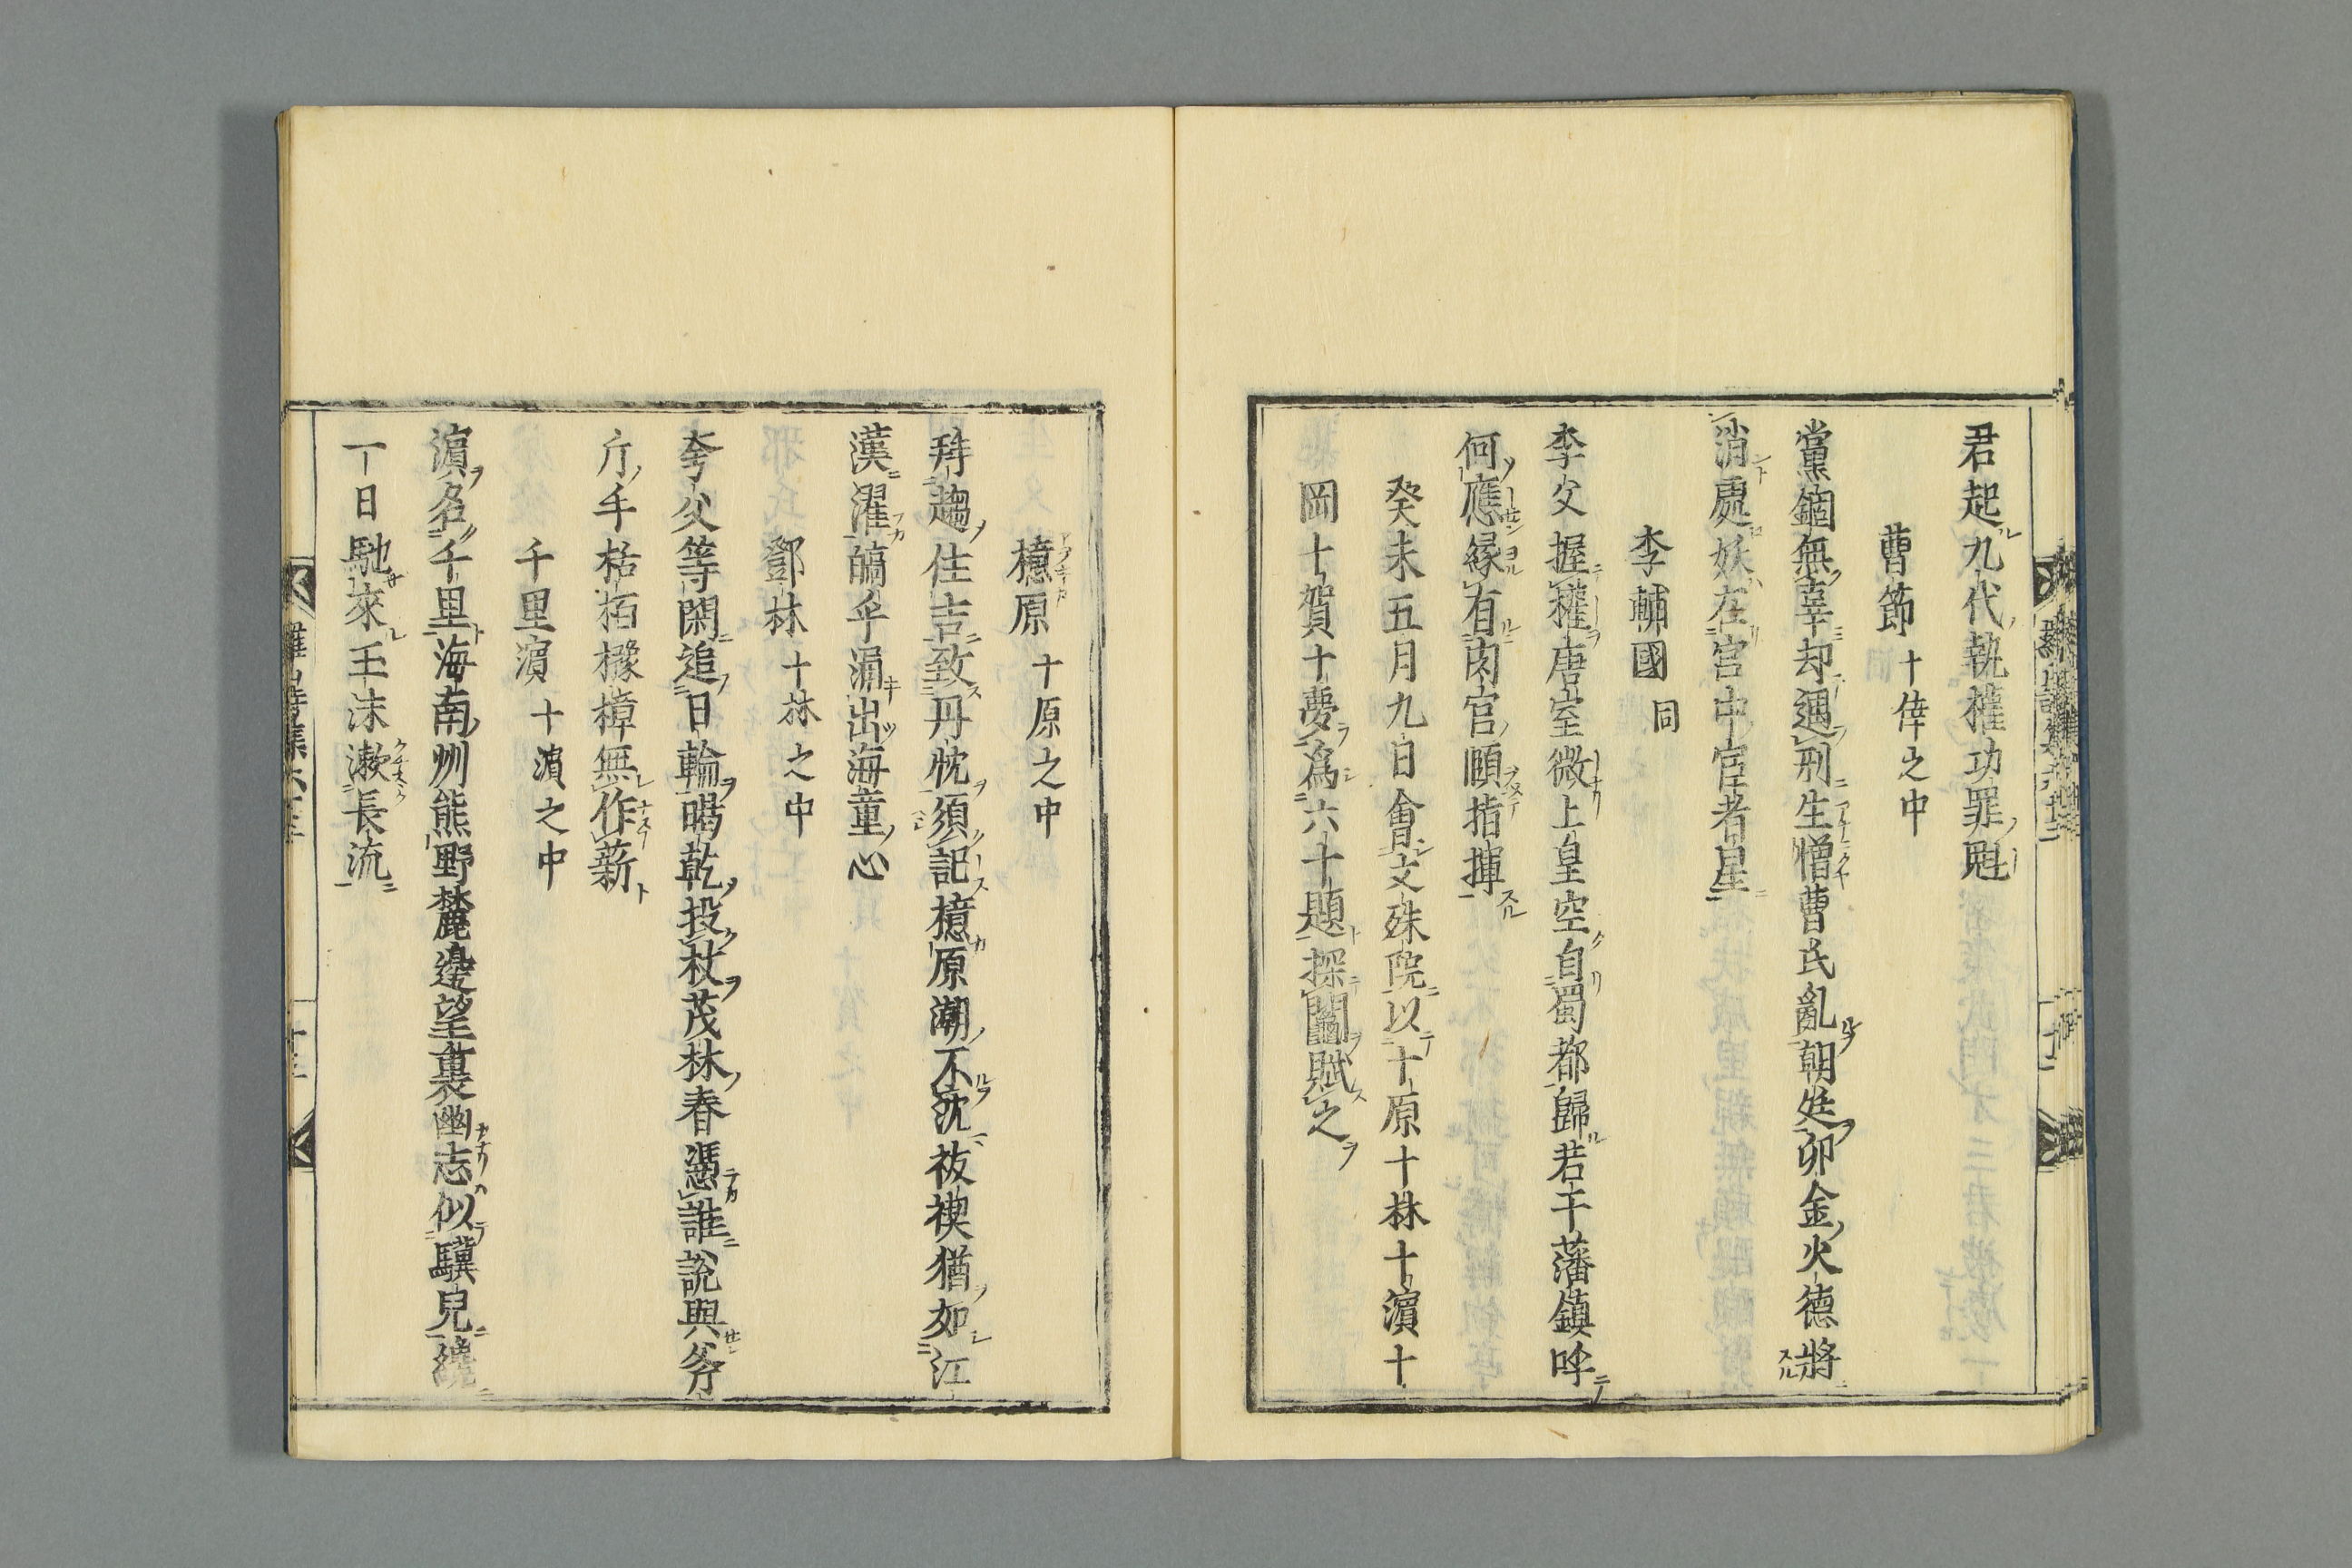 君起九代執權功罪魁
曹節 十倖之中
黨錮無辜却遇刑生憎曹氏亂朝廷卯金火德將
消處妖在宮中宦者星
李輔國 同
李父握權唐室微上皇空自蜀都歸若干藩鎮吽
何應緣有肉官頤指揮
癸未五月九日會文殊院以十原十林十濵十
岡十賀十夢爲六十題探鬮賦之
檍原 十原之中
拜趨住吉致丹忱須記檍原潮不沈祓禊猶如江
漢濯暠乎涌出海童心
鄧林 十林之中
夸父等閑追日輪暍乾投杖茂林春憑誰說與斧
斤手栝栢櫞樟無作薪
千里濵 十濵之中
濵名千里海南州熊野麓邊望裏幽志似驥兒繞
一日馳來玉沫漱長流